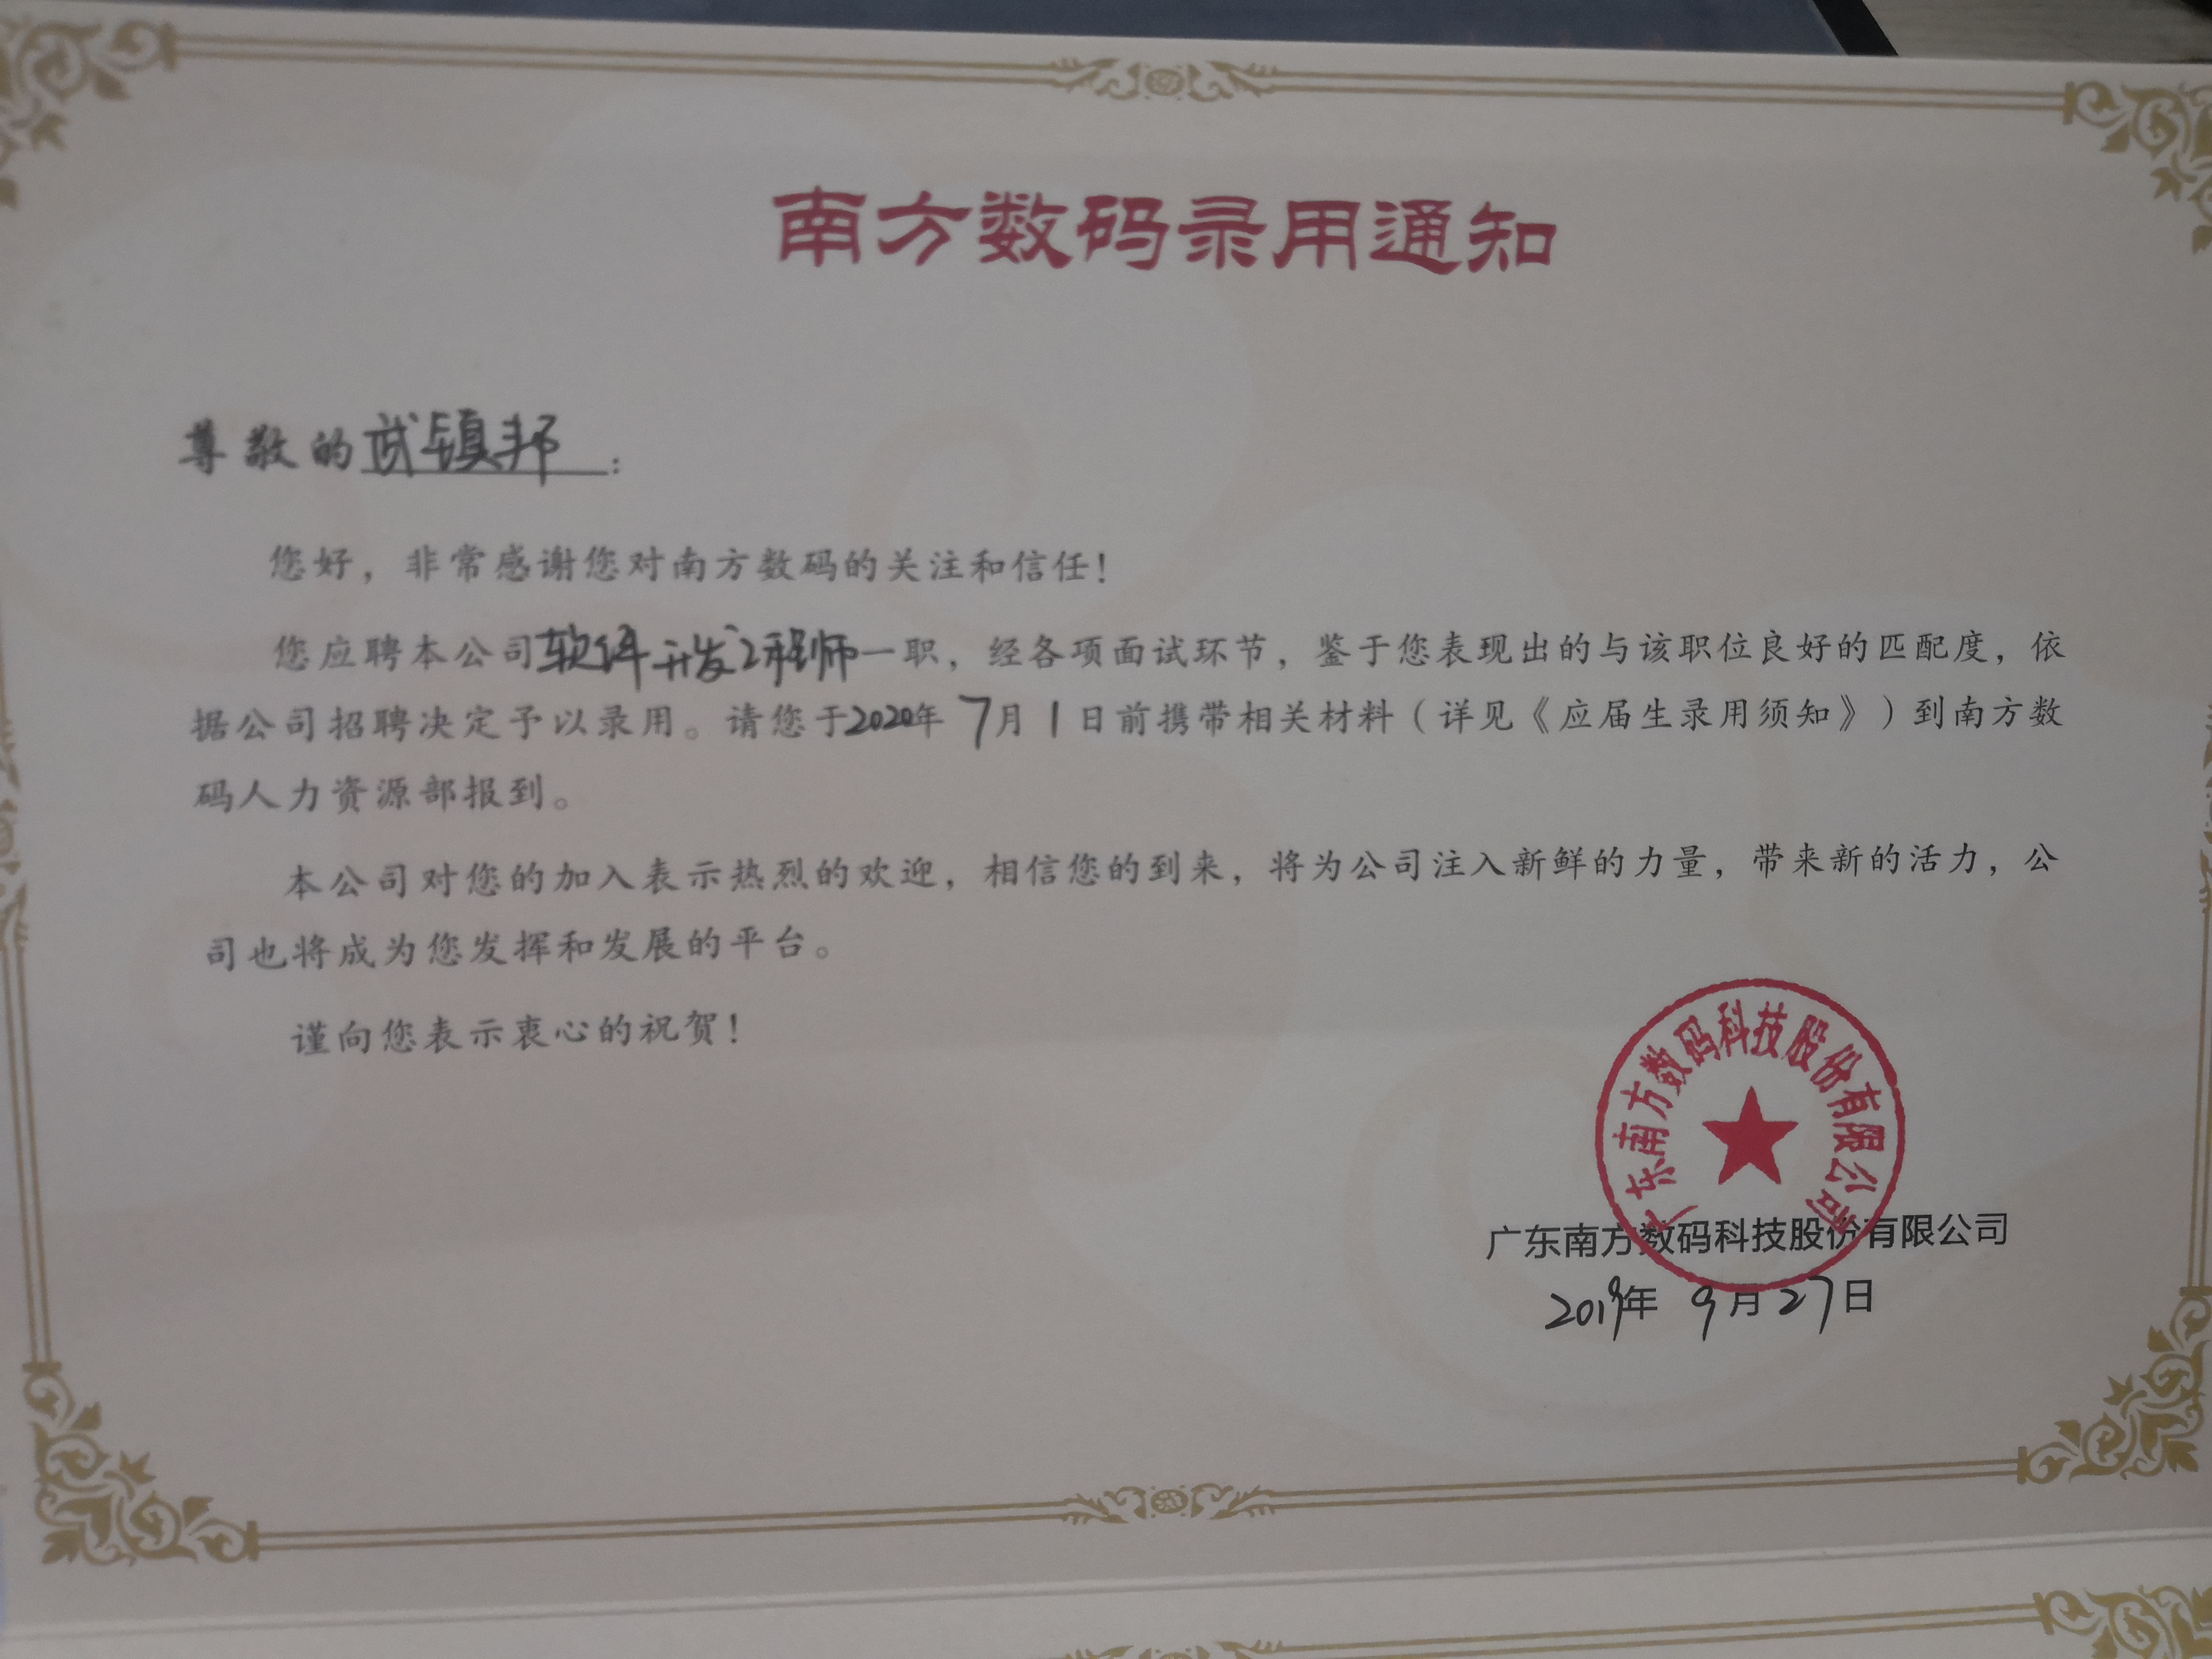 南方数码录用通知
尊敬的武镇邦：
您好，非常感谢您对南方数码的关注和信任！
您应聘本公司软件开发工程师一职，经各项面试环节，鉴于您表现出的与该职位良好的匹配度，依
据公司招聘决定予以录用。请您于2020年7月1日前携带相关材料（详见《应届生录用须知》）到南方数
码人力资源部报到。
本公司对您的加入表示热烈的欢迎，相信您的到来，将为公司注入新鲜的力量，带来新的活力，公
司也将成为您发挥和发展的平台。
谨向您表示衷心的祝贺！
广东南方数码科技股份有限公司
广东南方数码科技股份有限公司
2019年9月27日